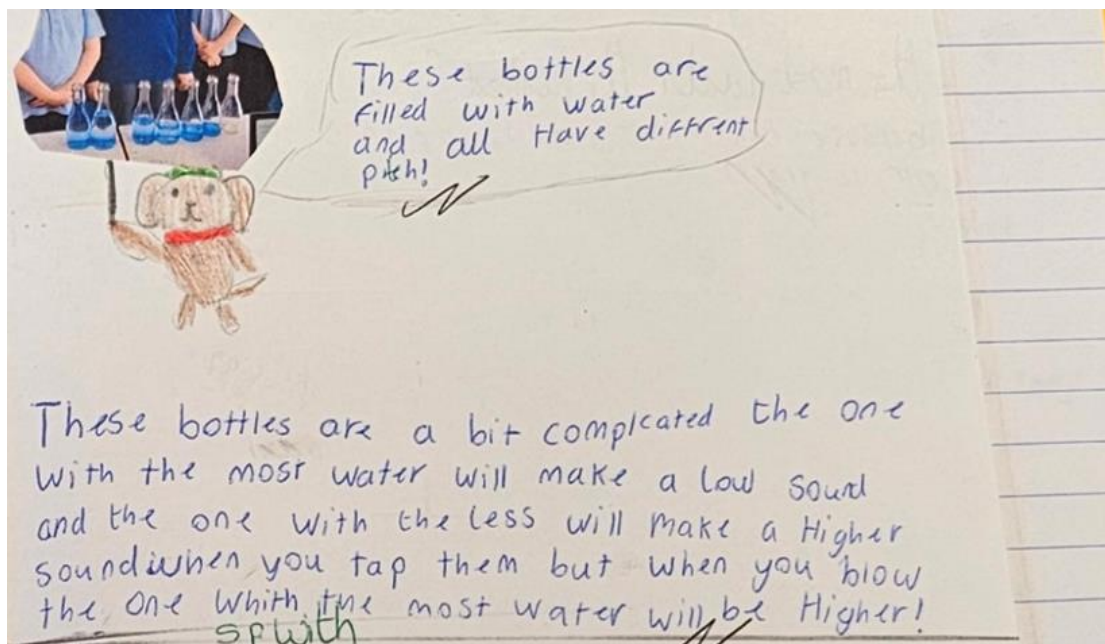 These bottles are
filled with water
and all Have diffrent
pitch!
These bottles are a bit complcated the one
with the most water will make a low sound
and the one with the less will make a Higher
sound when you tap them but when you blow
the one whith the most water will be Higher!
SP with